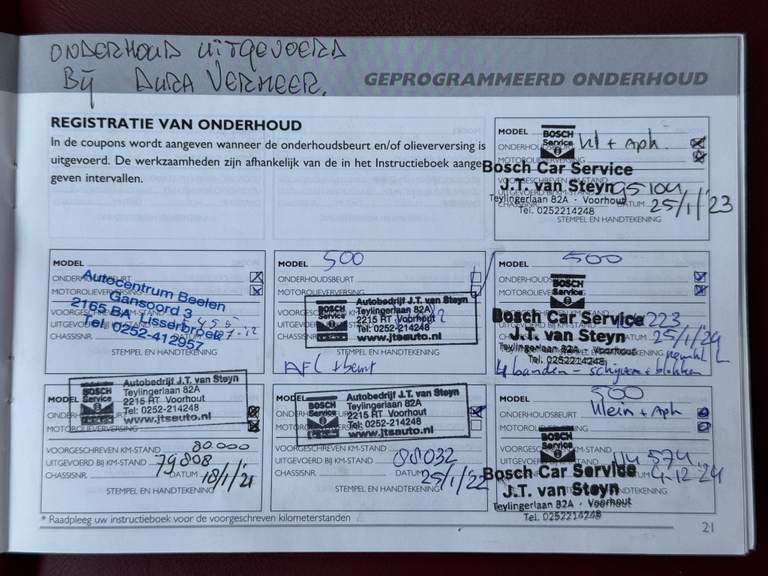 ONDERHOUD UITGEVOERD
Bij DURA VERMEER.
GEPROGRAMMEERD ONDERHOUD
REGISTRATIE VAN ONDERHOUD
In de coupons wordt aangeven wanneer de onderhoudsbeurt en/of olieverversing is
uitgevoerd. De werkzaamheden zijn afhankelijk van de in het Instructieboek aange-
geven intervallen.
MODEL
BOSCH
Service
+ Aph.
Bosch Car Service
J.T. van Steyn
Teylingerlaan 82A - Voorhout
Tel. 0252214248
DATUM 25/1/'23
STEMPEL EN HANDTEKENING
MODEL
ONDERHOUDSBEURT
MOTOROLIEVERVERSING
Autocentrum Beelen
Gansoord 3
2165 BA Lisserbroek
Tel. 0252-412957
CHASSISNR.
STEMPEL EN HANDTEKENING
MODEL 500
ONDERHOUDSBEURT
MOTOROLIEVERVERSING
BOSCH
Service
Autobedrijf J.T. van Steyn
Teylingerlaan 82A
2215 RT Voorhout
Tel: 0252-214248
www.jtsauto.nl
STEMPEL EN HANDTEKENING
AFL + beurt
MODEL 500
BOSCH
Service
Bosch Car Service
J.T. van Steyn
Teylingerlaan 82A - Voorhout
Tel. 0252214248
25/1/24
4 banden - schijven + blokken
BOSCH
Service
Autobedrijf J.T. van Steyn
Teylingerlaan 82A
2215 RT Voorhout
Tel: 0252-214248
www.jtsauto.nl
VOORGESCHREVEN KM-STAND 80.000
UITGEVOERD BIJ KM-STAND 79808
CHASSISNR. DATUM 18/1/'21
STEMPEL EN HANDTEKENING
BOSCH
Service
Autobedrijf J.T. van Steyn
Teylingerlaan 82A
2215 RT Voorhout
Tel: 0252-214248
www.jtsauto.nl
VOORGESCHREVEN KM-STAND
UITGEVOERD BIJ KM-STAND 88032
CHASSISNR. DATUM 25/1/'22
STEMPEL EN HANDTEKENING
MODEL 500
ONDERHOUDSBEURT Klein + Aph
BOSCH
Service
114574
4-12-24
Bosch Car Service
J.T. van Steyn
Teylingerlaan 82A - Voorhout
Tel. 0252214248
* Raadpleeg uw instructieboek voor de voorgeschreven kilometerstanden
21